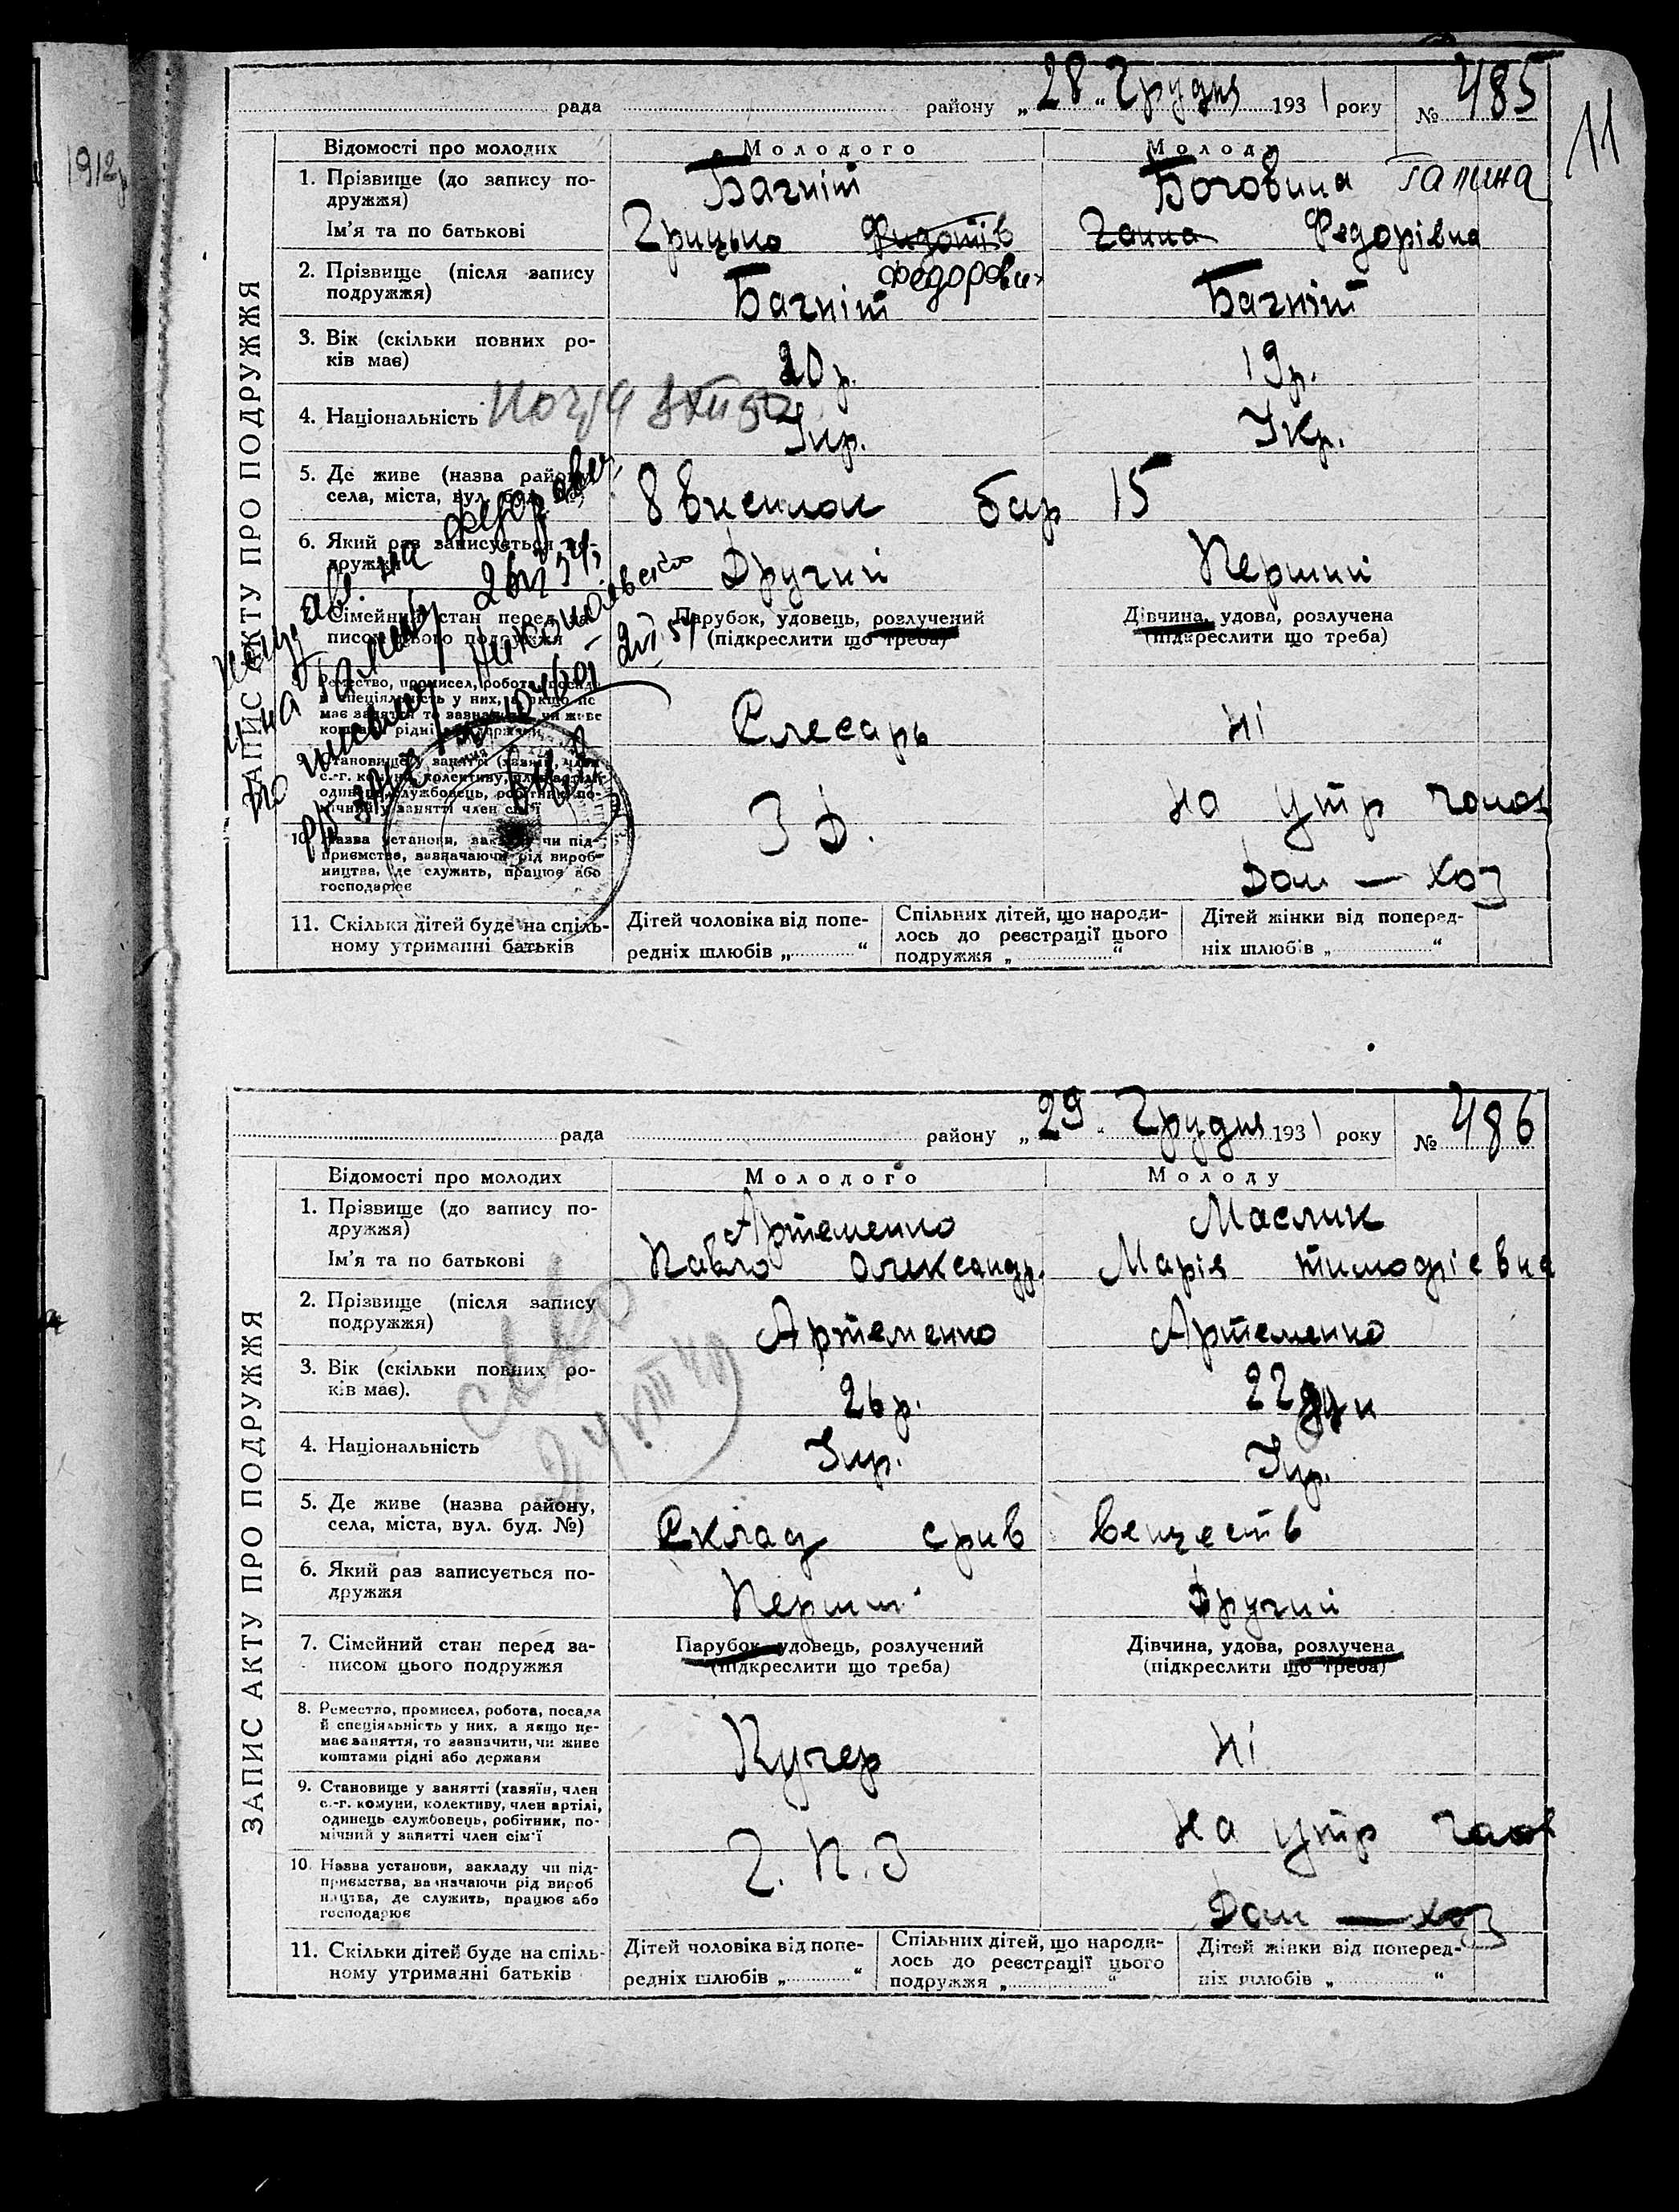 11
рада района „28“ Грудня 1931 року № 485
ЗАПИС АКТУ ПРО ПОДРУЖЖЯ
Відомості про молодих Молодого Молоду
1. Прізвище (до запису по-
дружжя)
Багніт Боговина Галина
Ім'я та по батькові Грицько Федорович Ганна Федорівна
2. Прізвище (після запису
подружжя)
Багніт Багніт
3. Вік (скільки повних ро-
ків має)
20 р. 19 р.
4. Національність Укр. Укр.
5. Де живе (назва району,
села, міста, вул. буд. №)
8 виселок бар 15
6. Який раз записується по-
дружжя
Другий Перший
Сімейний стан перед за-
писом цього подружжя
Парубок, удовець, розлучений
(підкреслити що треба)
Дівчина, удова, розлучена
(підкреслити що треба)
Ремество, промисел, робота, посада
й спеціяльність у них, а якщо не
має заняття то зазначити, чи живе
коштами рідні або держави
Слесарь Ні
9. Становище у занятті (хазяїн, член
с.-г. комуни, колективу, член артілі,
одинець службовець, робітник, по-
мічний у занятті член сім'ї
З Д. На утр чолов
10. Назва установи, закладу чи під-
приємства, зазначаючи рід вироб-
ництва, де служить, працює або
господарює
Дом — хоз
11. Скільки дітей буде на спіль-
ному утриманні батьків
Дітей чоловіка від попе-
редніх шлюбів „ “
Спільних дітей, що народи-
лось до реєстрації цього
подружжя „ “
Дітей жінки від поперед-
ніх шлюбів „ “
рада району „29“ Грудня 1931 року № 486
ЗАПИС АКТУ ПРО ПОДРУЖЖЯ
Відомості про молодих Молодого Молоду
1. Прізвище (до запису по-
дружжя)
Артеменко Маслик
Ім'я та по батькові Павло Олександр. Марія Тимофіевна
2. Прізвище (після запису
подружжя)
Артеменко Артеменко
3. Вік (скільки повних ро-
ків має).
26 р. 22
4. Національність Укр. Укр.
5. Де живе (назва району,
села, міста, вул. буд. №)
Склад срив веществ
6. Який раз записується по-
дружжя
Перший Другий
7. Сімейний стан перед за-
писом цього подружжя
Парубок, удовець, розлучений
(підкреслити що треба)
Дівчина, удова, розлучена
(підкреслити що треба)
8. Ремество, промисел, робота, посада
й спеціяльність у них, а якщо не-
має заняття, то зазначити, чи живе
коштами рідні або держави
Кучер Ні
9. Становище у занятті (хазяїн, член
с.-г. комуни, колективу, член артілі,
одинець службовець, робітник, по-
мічний у занятті член сім'ї
Г. П. З На утр чолов
10. Назва установи, закладу чи під-
приємства, зазначаючи рід вироб
ництва, де служить, працює або
господарює
Дом — хоз
11. Скільки дітей буде на спіль-
ному утриманні батьків
Дітей чоловіка від попе-
редніх шлюбів „ “
Спільних дітей, що народи-
лось до реєстрації цього
подружжя „ “
Дітей жінки від поперед-
ніх шлюбів „ “